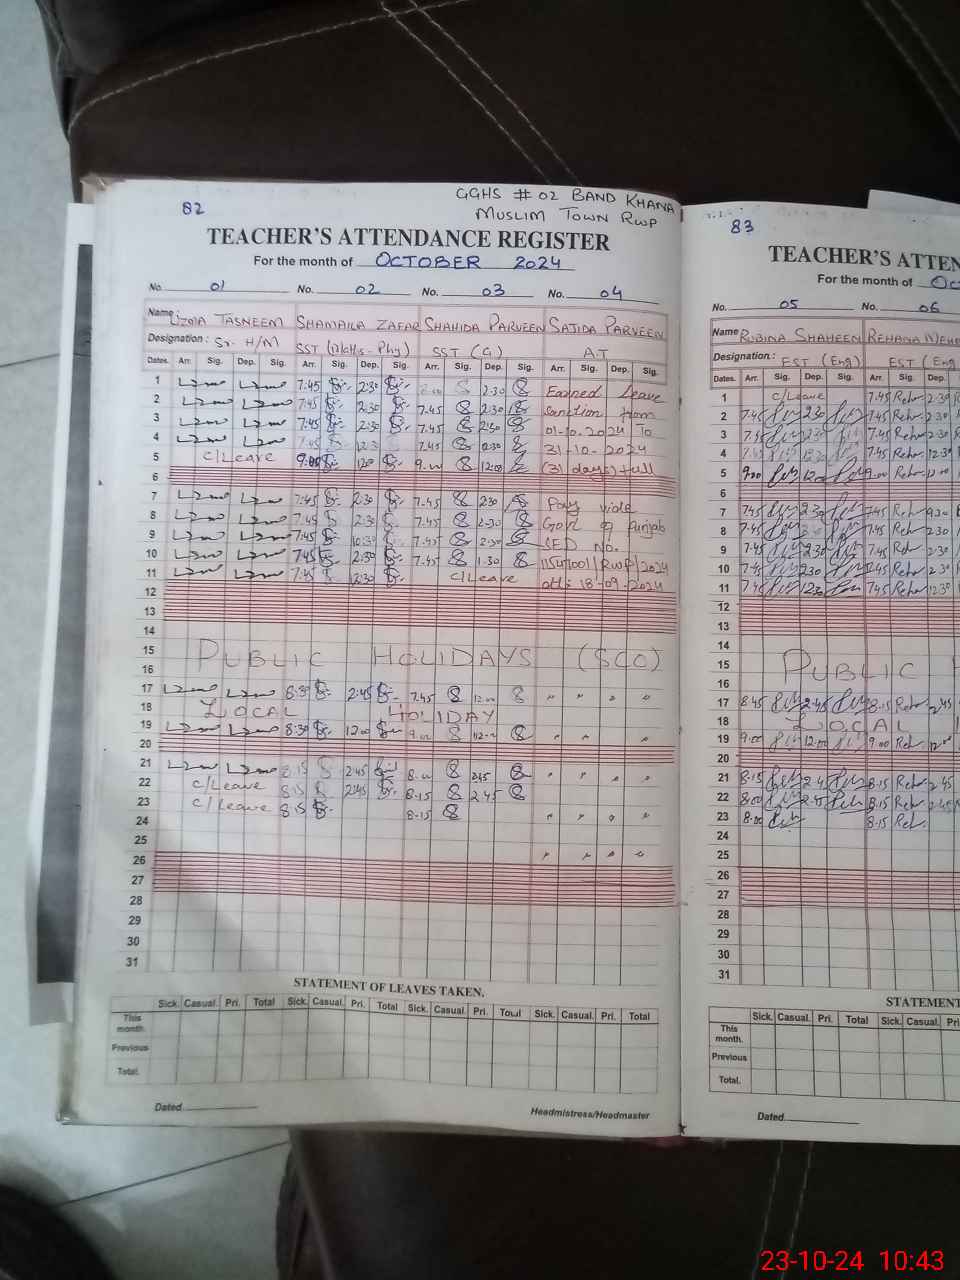 GGHS # 02 BAND KHANA
82
MUSLIM TOWN RWP
TEACHER'S ATTENDANCE REGISTER
For the month of OCTOBER 2024
No. 01 No. 02 No. 03 No. 04
Name UZMA TASNEEM SHAMAILA ZAFAR SHAHIDA PARVEEN SAJIDA PARVEEN
Designation: Sr. H/M SST (Maths - Phy) SST (G) A.T
Dates. Arr. Sig. Dep. Sig. Arr. Sig. Dep. Sig. Arr. Sig. Dep. Sig. Arr. Sig. Dep. Sig.
1 7:45 2:30 2:30 Earned Leave
2 7:45 2:30 7.45 2:30 Sanction from
3 7:45 2:30 7.45 2:30 01-10.2024 To
4 7:45 12:30 7.45 12:30 31-10-2024
5 C/Leave 9:00 1200 9.00 12:00 (31 days) full
6
7 7:45 2:30 7.45 2:30 Pay vide
8 7:45 2:30 7.45 2-30 Govt of Punjab
9 7:45 7.45 2-30 SED No.
10 7:45 2:30 7.45 1.30
11 7:45 2:30 C/Leave dt: 18-09-2024
12
13
14
15 PUBLIC HOLIDAYS (SCO)
16
17 8:30 2:45 7.45 12:00 " " " "
18 LOCAL HOLIDAY
19 8:30 1200 9.00 12-00 " " " "
20
21 8:15 2:45 8.00 2:45 " " " "
22 C/Leave 8:15 2:45 8-15 2.45
23 C/Leave 8:15 8-15
24 " " " "
25
26 " " " "
27
28
29
30
31
STATEMENT OF LEAVES TAKEN.
Sick. Casual. Pri. Total Sick. Casual. Pri. Total Sick. Casual. Pri. Total Sick. Casual. Pri. Total
This month.
Previous
Total.
Dated.
Headmistress/Headmaster
83
TEACHER'S ATTEN
For the month of Oc
No. 05 No. 06
Name RUBINA SHAHEEN REHANA MEHB
Designation: EST (Eng) EST (Eng
Dates. Arr. Sig. Dep. Sig. Arr. Sig. Dep.
1 C/Leave 7.45 Rehr 2:30
2 7.45 2:30 7.45 Rehr 2:30
3 7.45 2:30 7.45 Rehr 2:30
4 7.45 12:30 7.45 Rehr 12:30
5 9:00 12:00 9.00 Rehr 12:00
6
7 7:45 2:30 7.45 Rehr
8 7.45 7.45 Rehr 2:30
9 7.45 2:30 7.45 Rehr 2:30
10 7.45 2:30 7.45 Rehr 2:30
11 7.45 12:30 7.45 Rehr 12:30
12
13
14
15 PUBLIC H
16
17 8.45 2:45 8.15 Rehr 2.45
18 LOCAL
19 9:00 12:00 9.00 Rehr 12:00
20
21 8:15 2.45 8.15 Rehr 2.45
22 8:00 2.45 8.15 Rehr 2.45
23 8:00 8.15 Rehr.
24
25
26
27
28
29
30
31
STATEMENT
Sick. Casual. Pri. Total Sick. Casual. Pri.
This month.
Previous
Total.
Dated.
23-10-24 10:43